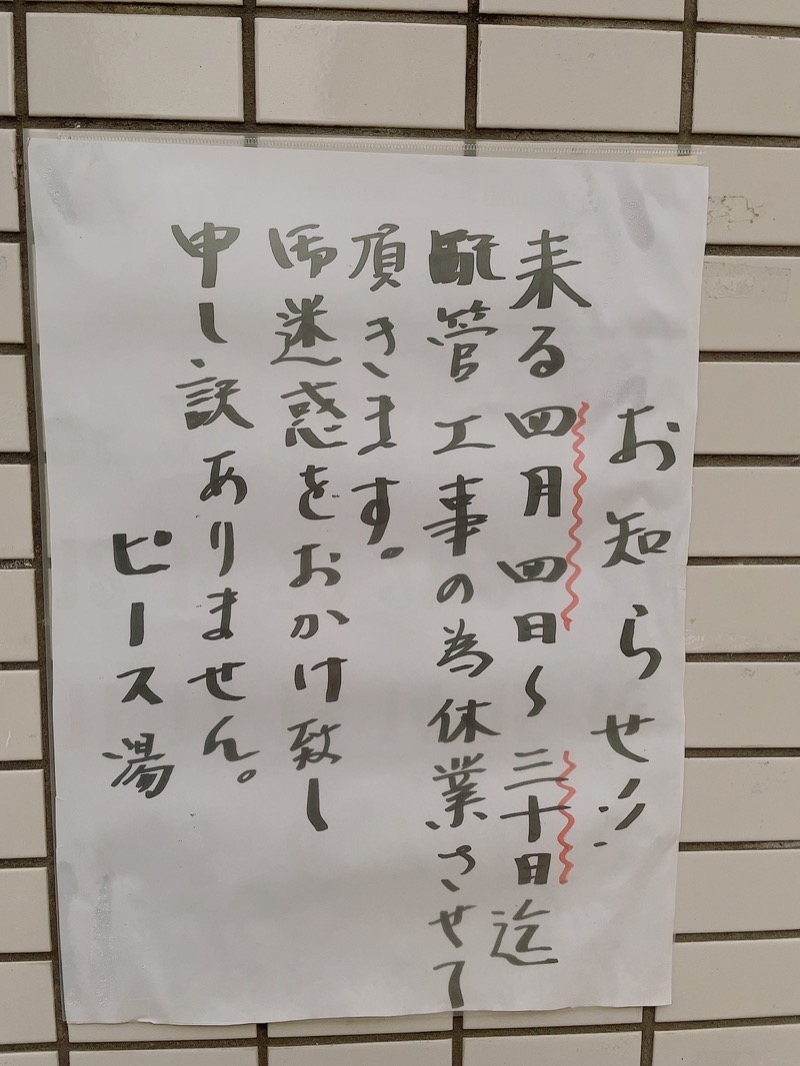 お知らせ!!
来る四月四日〜三十日迄
配管工事の為休業させて
頂きます。
御迷惑をおかけ致し
申し訳ありません。
ピース湯